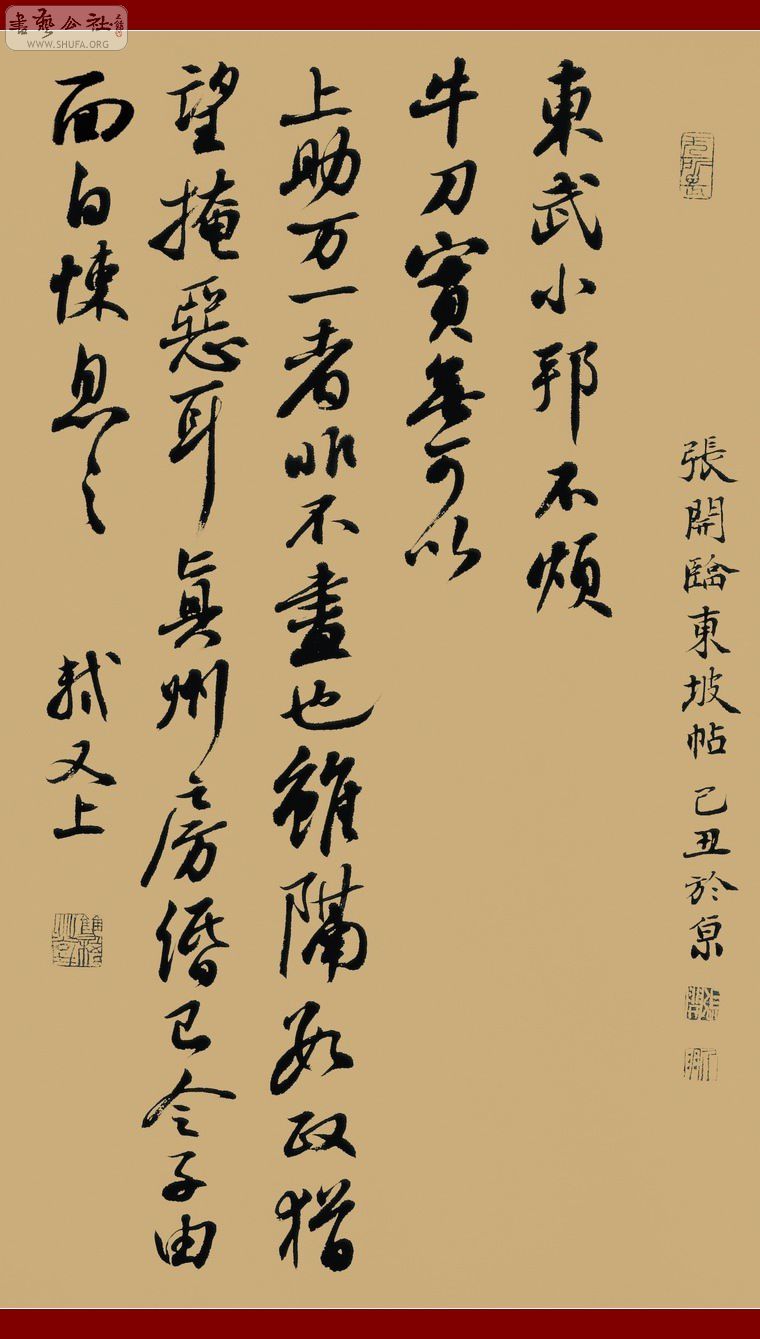 書藝公社
WWW.SHUFA.ORG
張開臨東坡帖 己丑於京
東武小邦不煩
牛刀實無可以
上助万一者非不盡也雖隔数政猶
望掩惡耳眞州房緡已令子由
面白悚息〻 軾又上